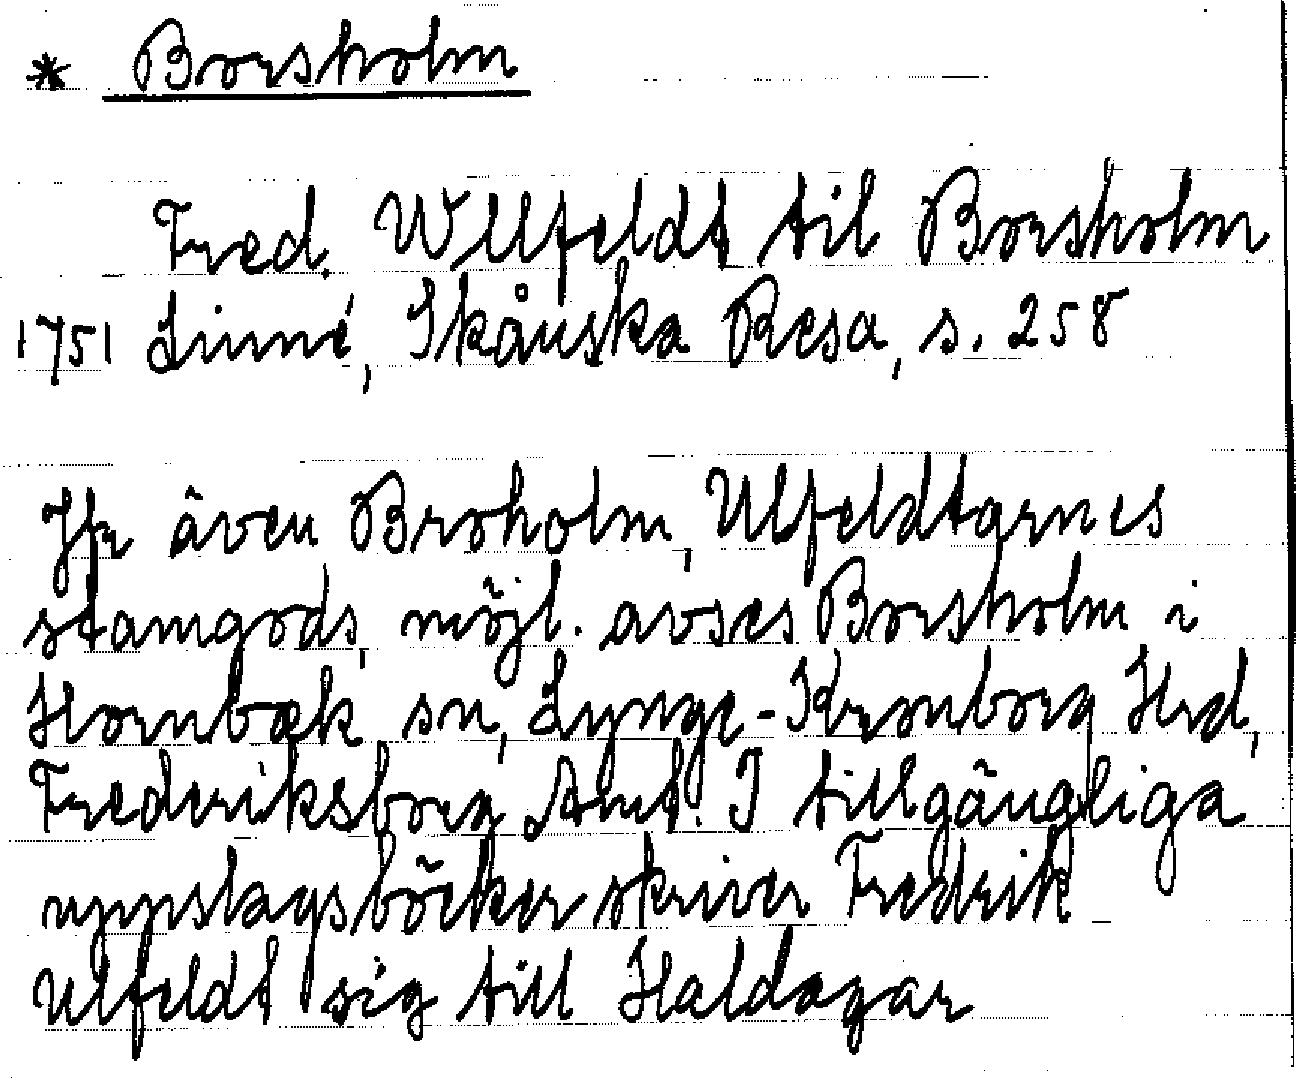 * Borsholm
Fred. Wllfeldt til Borsholm
1751 Linné, Skånska Resa, s. 258
Jfr även Broholm, Ulfeldtarnes
stamgods, möjl. avses Borsholm i
Hornbæk sn, Lynge-Kronborg Hrd,
Frederiksborg Amt. I tillgängliga
uppslagsböcker skriver Fredrik
Ulfeldt sig till Haldagar